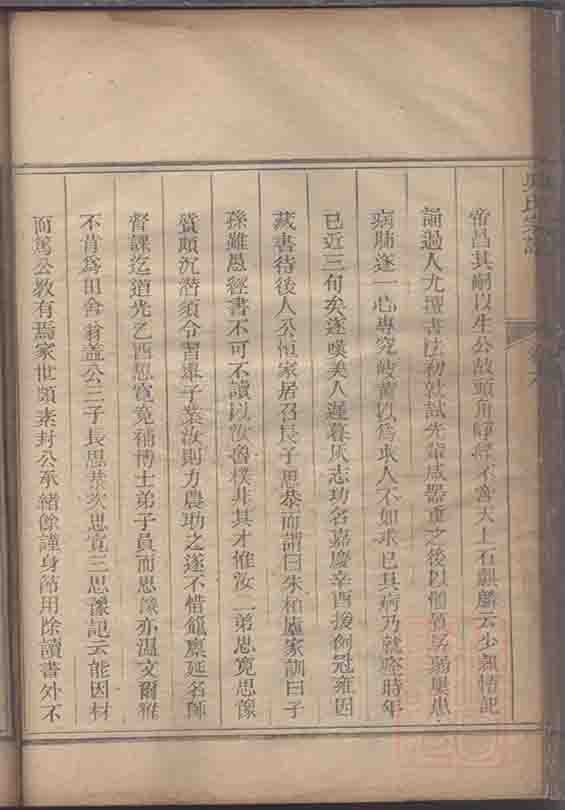 吳氏宗譜
帝昌其嗣以生公故頭角崢嶸不啻天上石麒麟云少無情記
誦過人尤擅書法初就試先輩咸器重之後以體質孱弱屢患
病肺遂一心專究岐黃以為求人不如求已其病乃就瘥時年
已近三旬矣遂嘆美人遲暮灰志功名嘉慶辛酉援例冠雍因
藏書待後人公恒家居召長子思恭而謂曰朱柏廬家訓曰子
孫雖愚經書不可不讀以汝魯樸非其才惟汝二弟思寬思像
質頗沉潛須令習舉子業汝則力農助之遂不惜籯廩延名師
督課迄道光乙酉思寬竟補博士弟子員而思像亦溫文爾雅
不肯為田舍翁蓋公三子長思恭次思寬三思像記云能因材
而篤公教有焉家世頗素封公承緒餘謹身節用除讀書外不